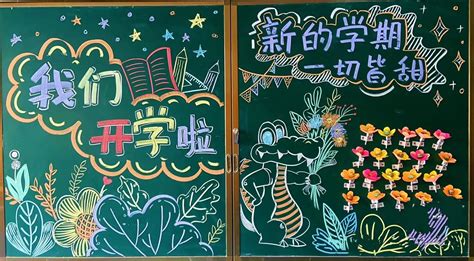 我们
开学啦
新的学期
一切皆甜